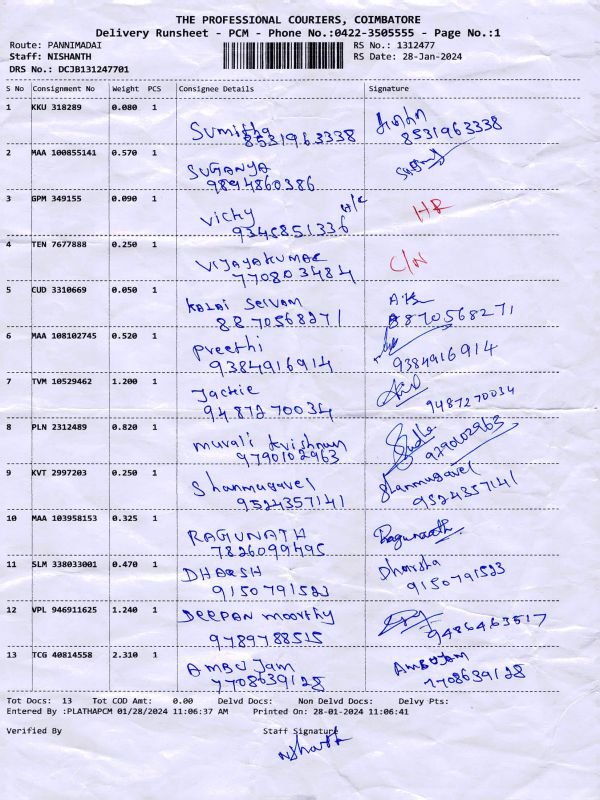 THE PROFESSIONAL COURIERS, COIMBATORE
Delivery Runsheet - PCM - Phone No.:0422-3505555 - Page No.:1
Route: PANNIMADAI RS No.: 1312477
Staff: NISHANTH RS Date: 28-Jan-2024
DRS No.: DCJB131247701
S No Consignment No Weight PCS Consignee Details Signature
1 KKU 318289 0.080 1
Sumitha
8531963338 8531963338
2 MAA 100855141 0.570 1
SUGANYA
9894860386
3 GPM 349155 0.090 1
Vichy H/C HR
9345851336
4 TEN 7677888 0.250 1
VIJAYAKUMAR C/N
770803484
5 CUD 3310669 0.050 1
KALAI SELVAM A.K
8870568271 8870568271
6 MAA 108102745 0.520 1
Preethi
9384916914 9384916914
7 TVM 10529462 1.200 1
Jackie
9487270034 9487270034
8 PLN 2312489 0.820 1
murali krishnan
9790102963 9790102963
9 KVT 2997203 0.250 1
Shanmugavel Shanmugavel
9524357141 9524357141
10 MAA 103958153 0.325 1
RAGUNATH Ragunaath
7826099495
11 SLM 338033001 0.470 1
DHARSH Dharsha
9150791523 9150791523
12 VPL 946911625 1.240 1
DEEPAN moorthy
9789788515 9486463517
13 TCG 40814558 2.310 1
AMBUJAM AMBUJAM
7708639128 7708639128
Tot Docs: 13 Tot COD Amt: 0.00 Delvd Docs: Non Delvd Docs: Delvy Pts:
Entered By :PLATHAPCM 01/28/2024 11:06:37 AM Printed On: 28-01-2024 11:06:41
Verified By Staff Signature
Nishanth